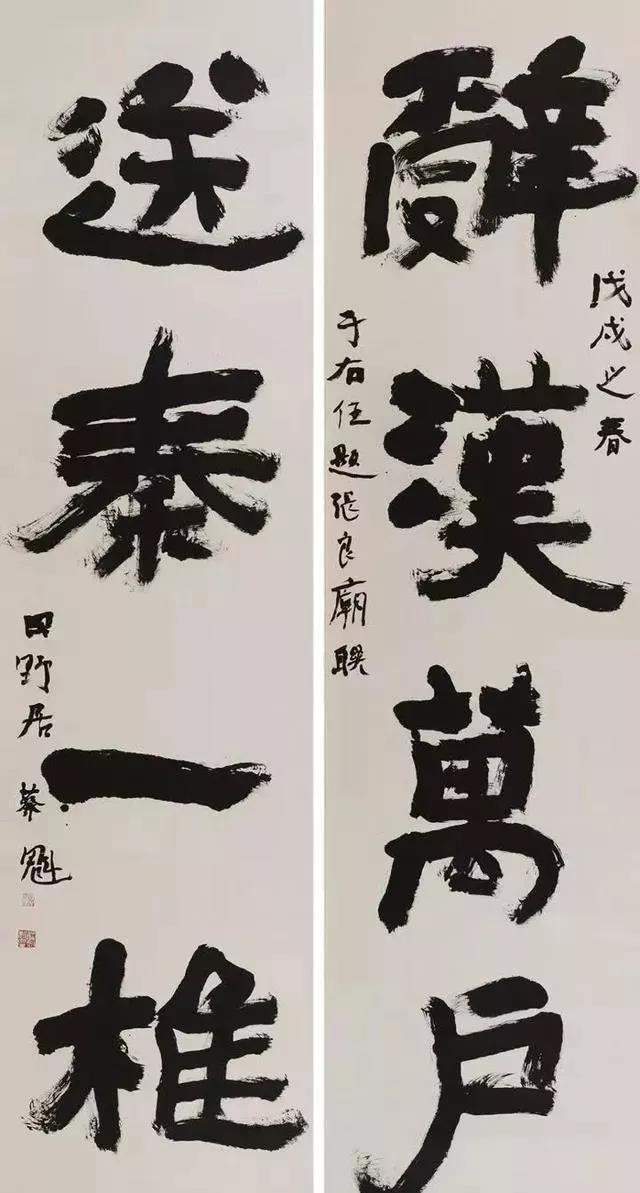 戊戌之春
辤漢萬戶
于右任題張良廟聯
送秦一椎
田野居 蔡